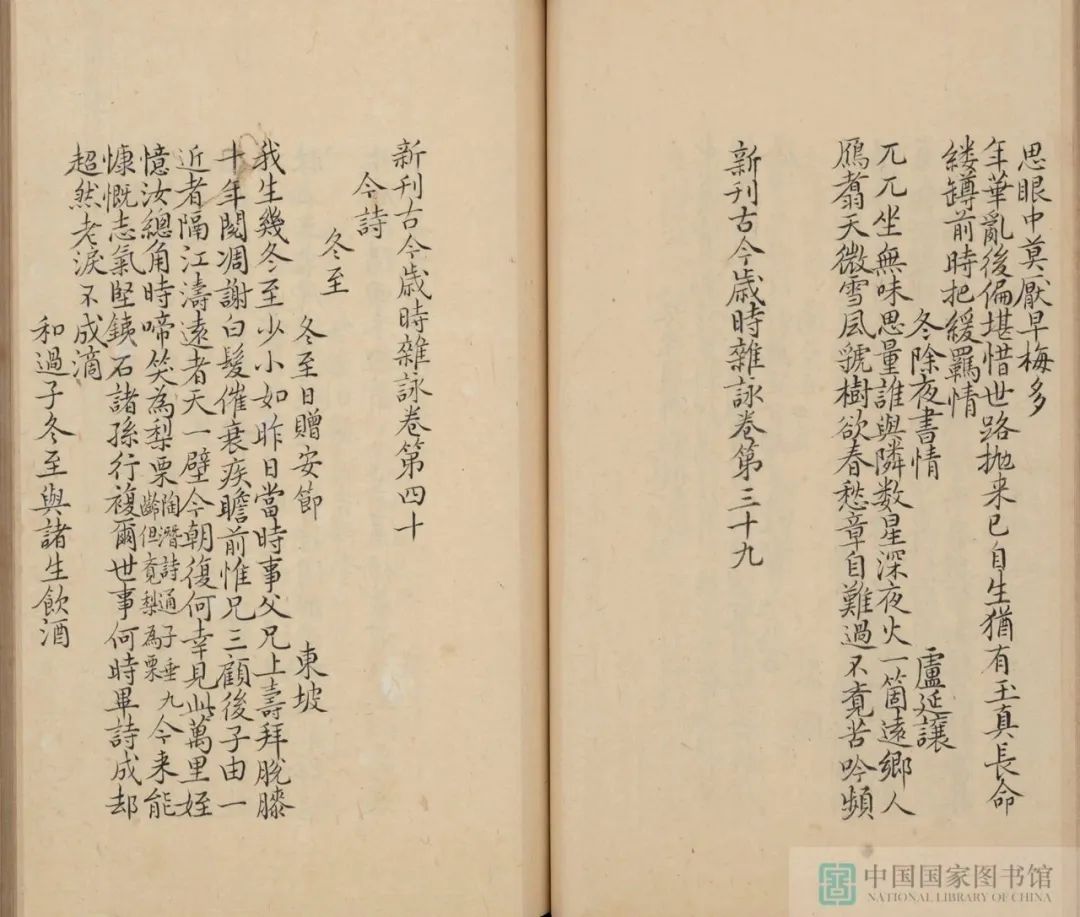 思眼中莫厭早梅多
年華亂後偏堪惜世路抛来已自生猶有玉真長命
縷罇前時把緩羈情
冬除夜書情 盧延讓
兀兀坐無味思量誰與隣数星深夜火一箇遠鄉人
鴈翥天微雪風號樹欲春愁章自難過不竟苦吟頻
新刊古今歲時雜詠卷第三十九
新刊古今歲時雜詠卷第四十
今詩
冬至
冬至日贈安節 東坡
我生幾冬至少小如昨日當時事父兄上壽拜脫膝
十年閱凋謝白髮催衰疾瞻前惟兄三顧後子由一
近者隔江濤遠者天一壁今朝復何幸見此萬里姪
憶汝總角時啼笑為梨栗陶潛詩通子垂九齡但竟梨為栗今来能
慷慨志氣堅鐵石諸孫行複爾世事何時畢詩成却
超然老淚不成滴
和過子冬至與諸生飲酒
中国国家图书馆
NATIONAL LIBRARY OF CHINA